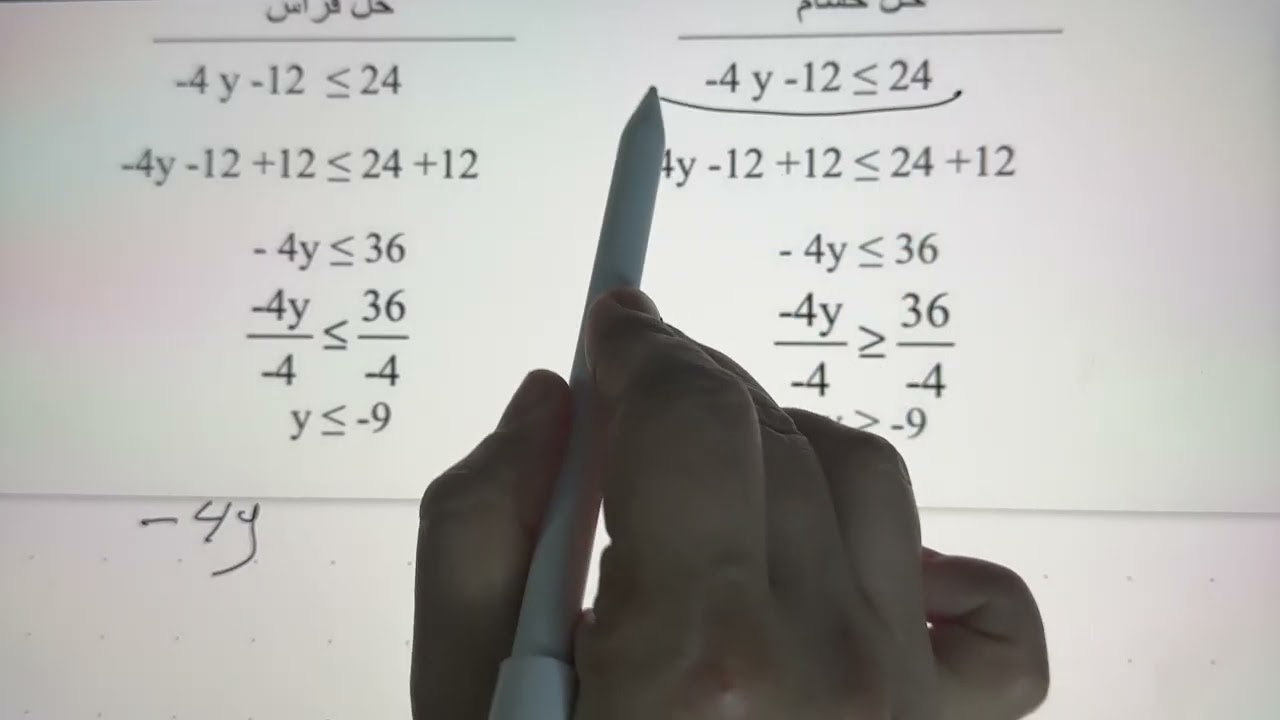 حل فراس
-4 y -12 ≤ 24
-4y -12 +12 ≤ 24 +12
- 4y ≤ 36
-4y/-4 ≤ 36/-4
y ≤ -9
حل حسام
-4 y -12 ≤ 24
4y -12 +12 ≤ 24 +12
- 4y ≤ 36
-4y/-4 ≥ 36/-4
≥ -9
- 4y